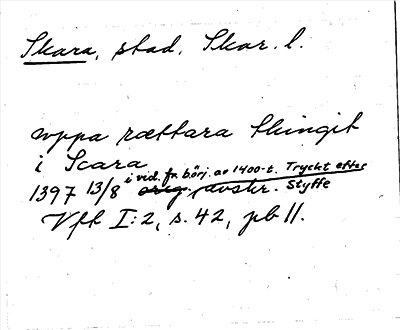 Skara, stad, Skar. l.
wppa rættara thingit
i Scara
i vid. fr. börj. av 1400-t. Tryckt efter
1397 13/8 orig., avskr. Styffe
Vfk I:2, s. 42, pb 11.